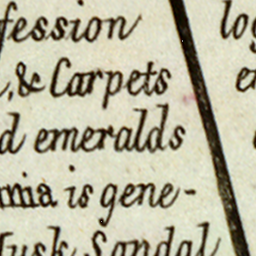 fession
, & Carpets
d emeralds
mia is gene-
Musk, Sandal